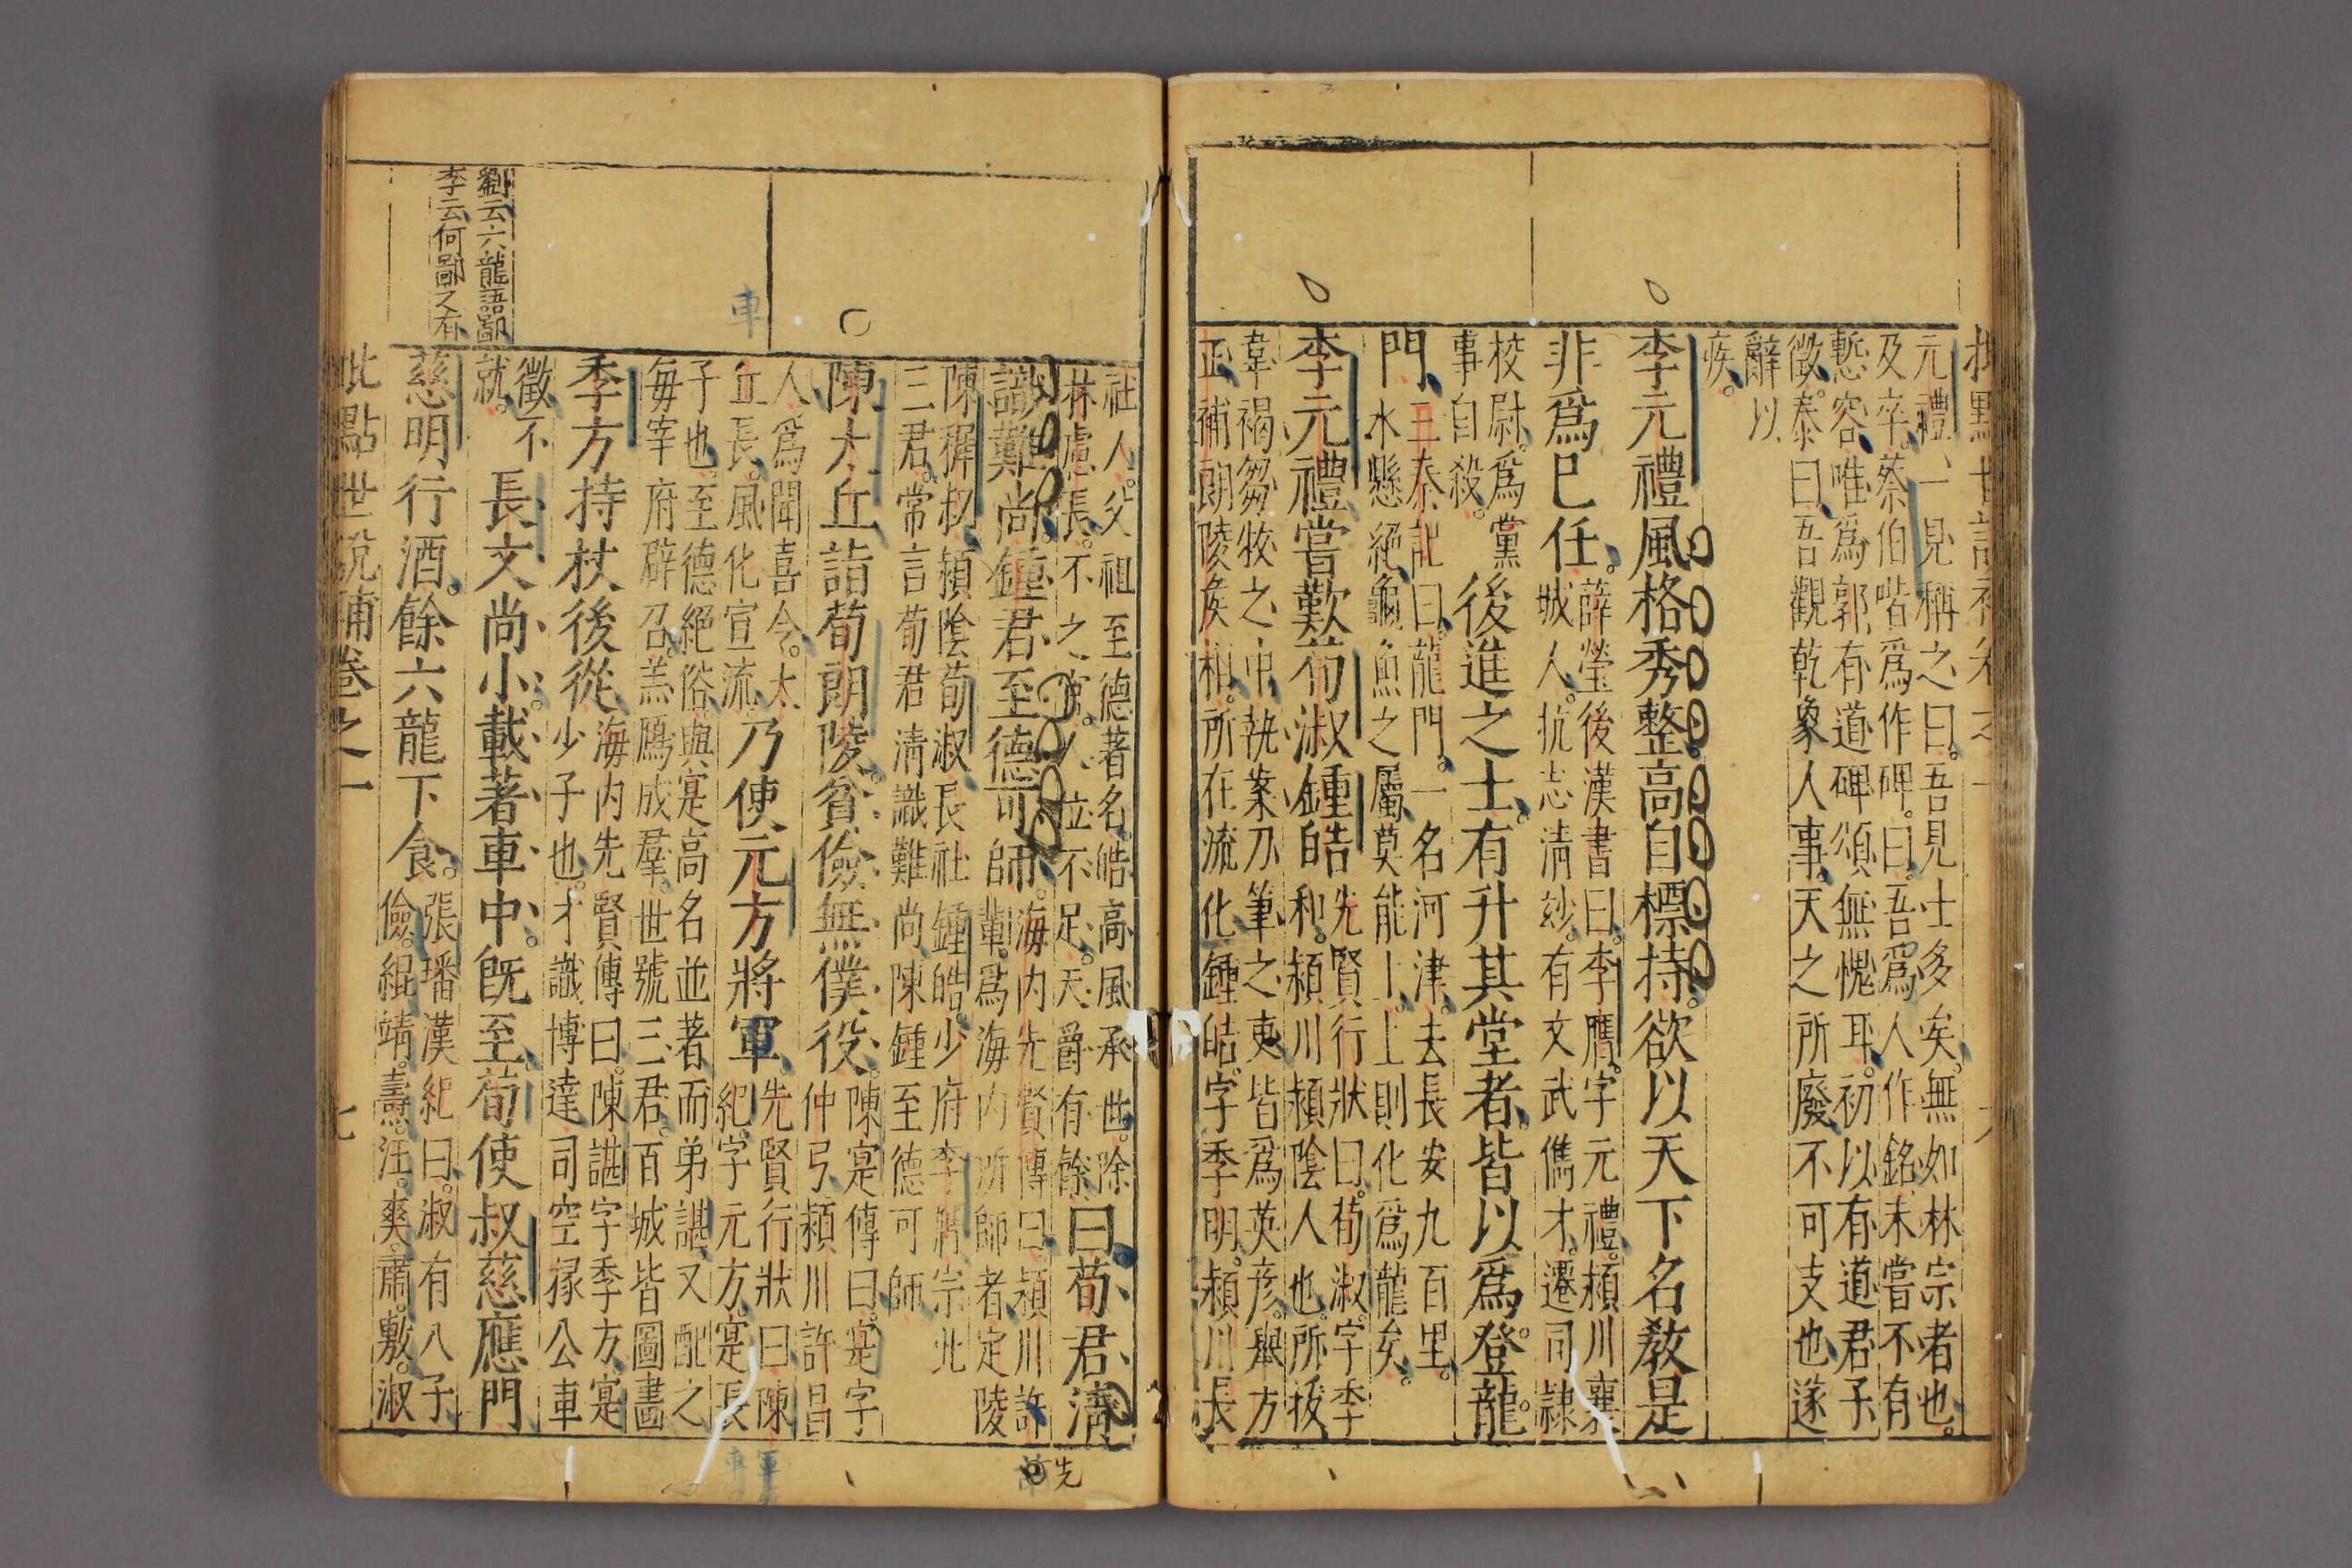 元禮一見稱之曰。吾見士多矣。無如林宗者也。
及卒。蔡伯喈爲作碑。曰。吾爲人作銘、未嘗不有
慙容。唯爲郭有道碑頌無愧耳。初以有道君子
徵。泰曰、吾觀乾象人事。天之所廢不可支也遂
辭以
疾。
李元禮風格秀整高自標持。欲以天下名教是
非爲巳任。
薛瑩後漢書曰。李膺。字元禮。潁川襄
城人。抗志清妙。有文武儁才。遷司隷
校尉。爲黨
事自殺。
後進之士。有升其堂者。皆以爲登龍
門
三秦記曰。龍門。一名河津。去長安九百里。
水懸絕龜魚之屬莫能上。上則化爲龍矣。
李元禮嘗歎荀淑鍾皓
先賢行狀曰。荀淑。字季
和。潁川潁陰人也。所拔
韋褐芻牧之中執案刀筆之吏皆爲英彥。舉方
正補朗陵矦相。所在流化鍾皓。字季明。潁川長
社人。父祖至德著名。皓高風承世。除
林慮長。不之官。人位不足。天爵有餘
曰。荀君清
識難尚。鍾君至德可師。
海内先賢傳曰。潁川許
先
輩。爲海内所師者定陵
陳穉叔潁陰荀淑長社鍾皓。少府李膺宗此
三君。常言荀君清識難尚陳鍾至德可師
陳太丘詣荀朗陵。貧儉無僕役。
陳寔傳曰。寔字
仲弓。潁川許昌
人。爲聞喜令。太
丘長。風化宣流。
乃使元方將軍
先賢行狀曰陳
紀。字元方。寔長
子也。至德絕俗。與寔高名並著。而弟諶又配之
每宰府辟召。羔鴈成羣。世號三君。百城皆圖畫
季方持杖後從
海内先賢傳曰。陳諶字季方寔
少子也。才識博達司空掾公車
徵不
就。
長文尚小。載著車中。旣至。荀使叔慈應門
慈明行酒。餘六龍下食。
張璠漢紀曰。淑有八子
儉。緄。靖。燾。汪。爽。肅。敷。淑
劉云六龍語鄙
李云何鄙之有
車
批點世說補卷之一
七